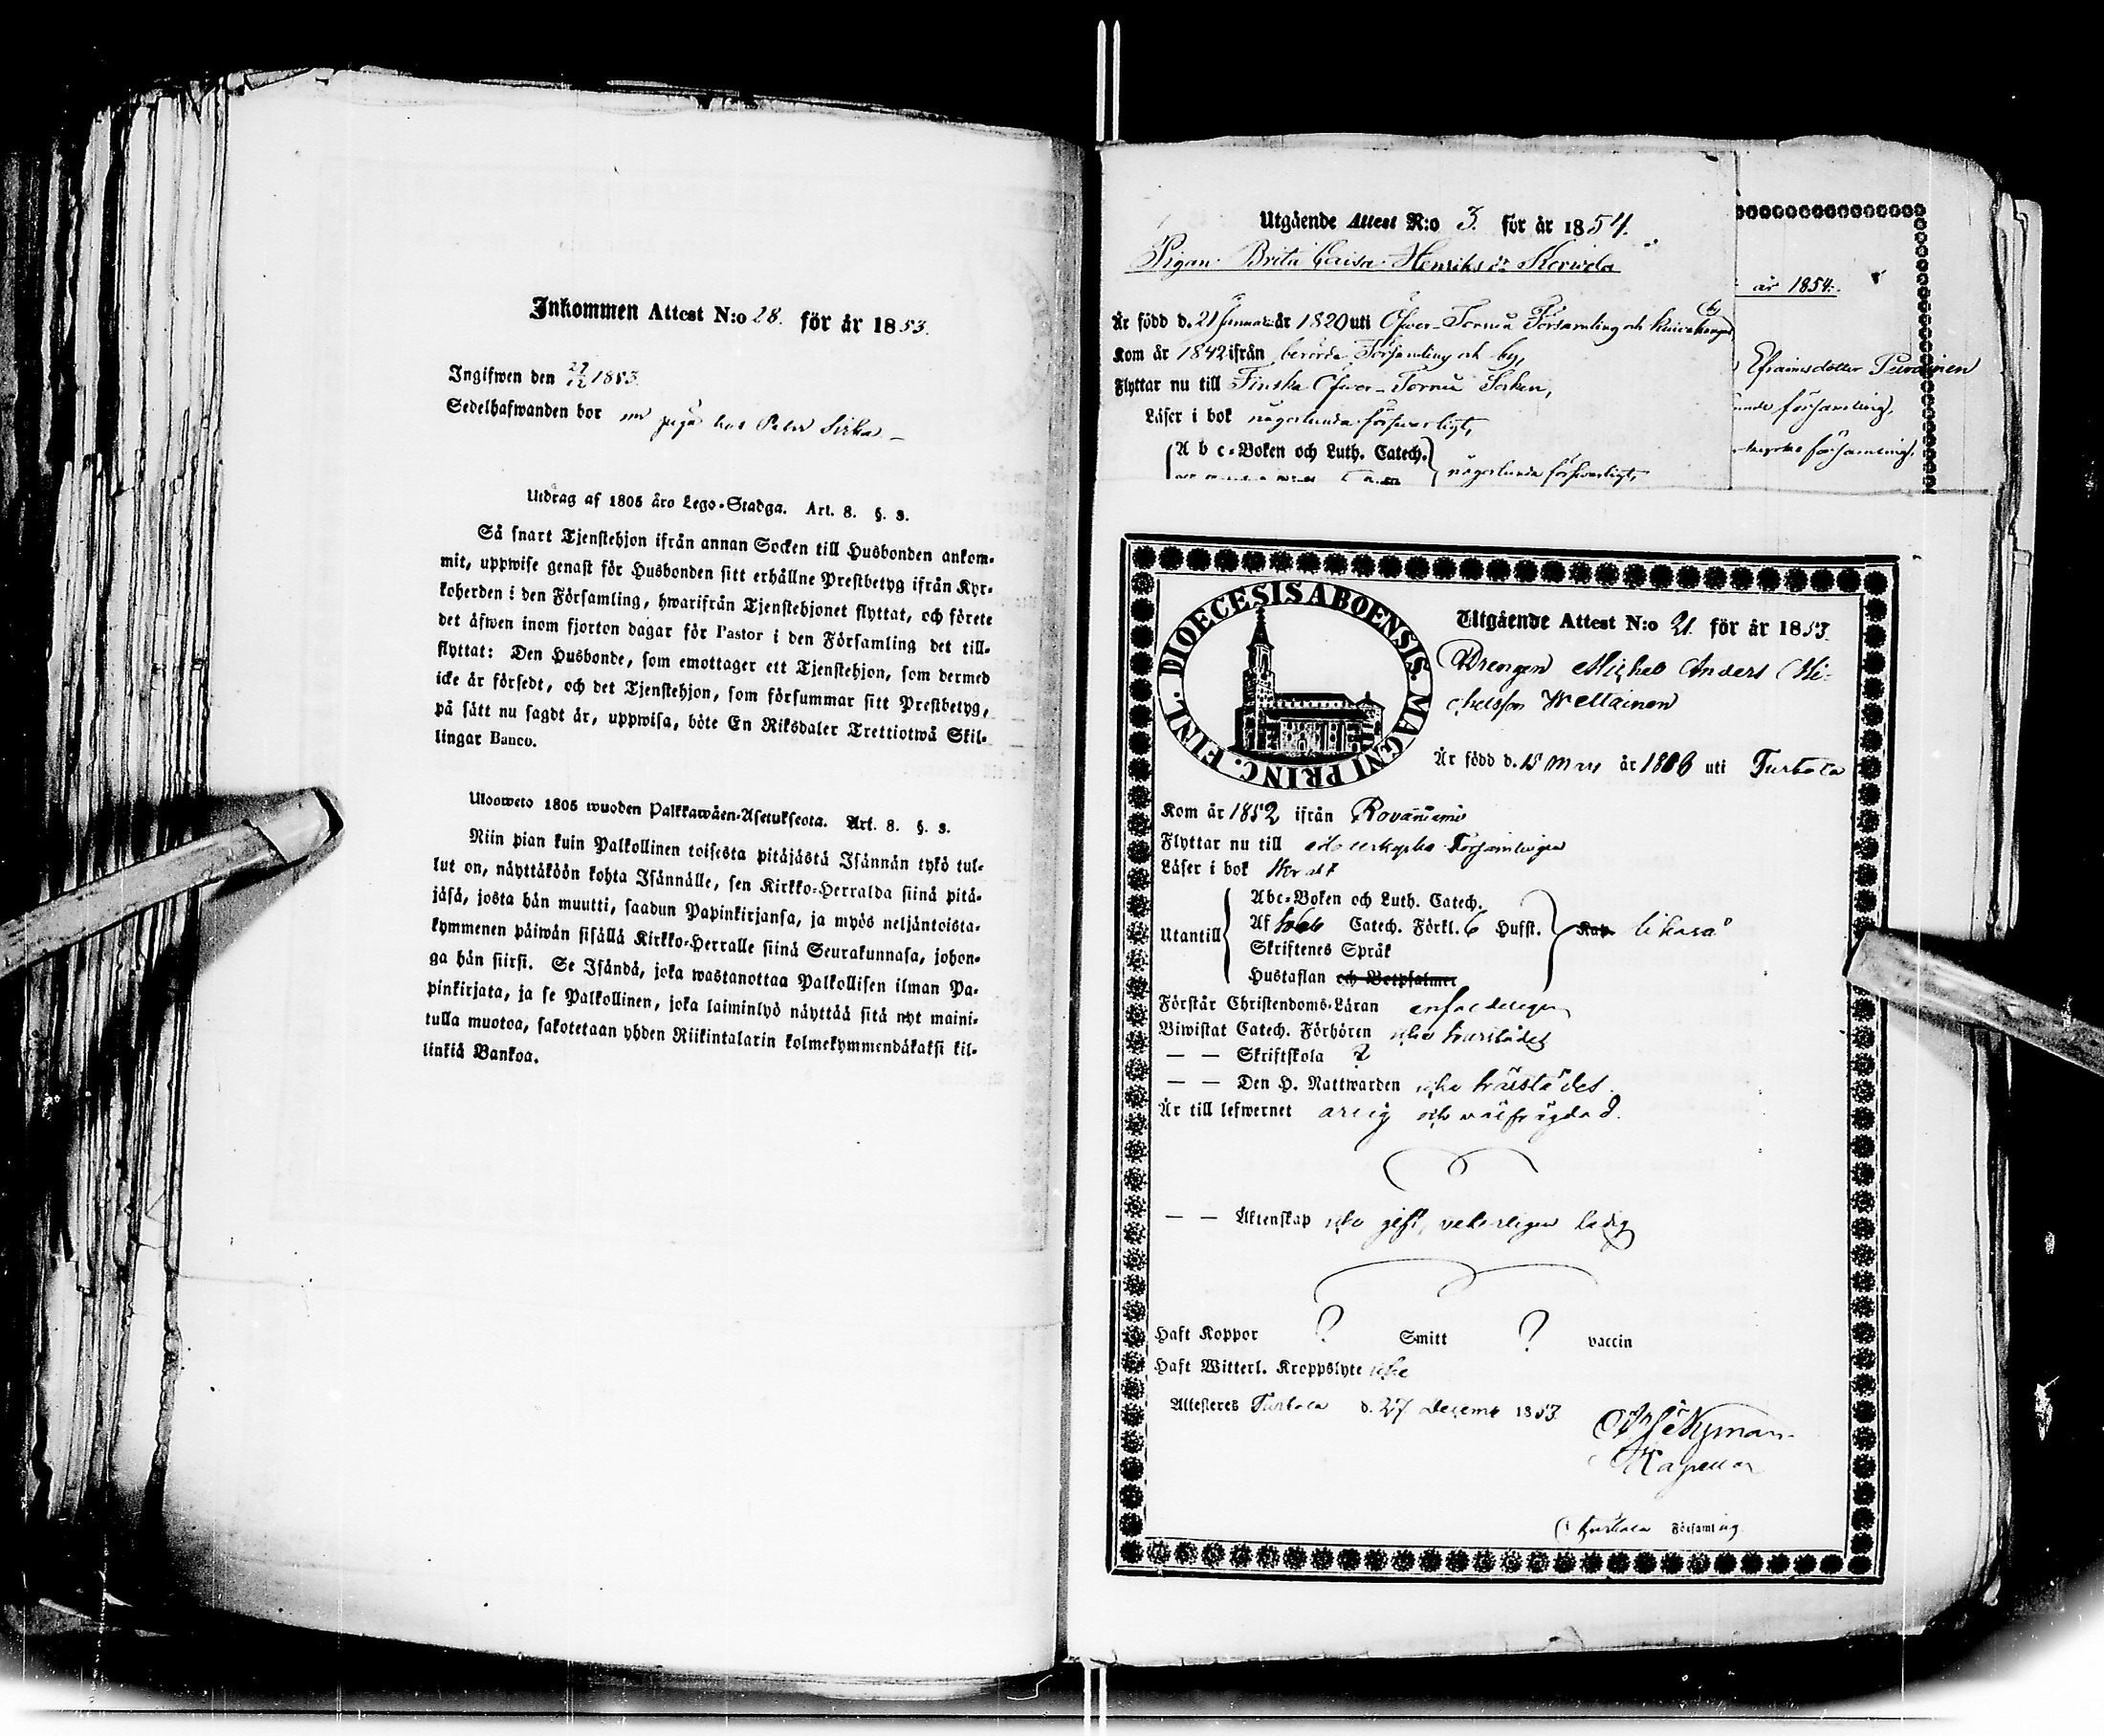 Inkommen Attest N:o 28. för år 1853.
Ingifwen den 27/12 1853.
Sedelhafwanden bor piga hos Peter Sirka –
Utdrag af 1805 års Lego-Stadga. Art. 8. §. 3.
Så snart Tjenstehjon ifrån annan Socken till Husbonden ankom-
mit, uppwise genast för Husbonden sitt erhållne Prestbetyg ifrån Kyr-
koherden i den Församling, hwarifrån Tjenstehjonet flyttat, och förete
det äfwen inom fjorton dagar för Pastor i den Församling det till-
flyttat: Den Husbonde, som emottager ett Tjenstehjon, som dermed
icke är försedt, och det Tjenstehjon, som försummar sitt Prestbetyg,
på sätt nu sagdt är, uppwisa, böte En Riksdaler Trettiotwå Skil-
lingar Banco.
Ulosweto 1805 wuoden Palkkawäen-Asetuksesta. Art. 8. §. 3.
Niin pian kuin Palkollinen toisesta pitäjästä Isännän tykö tul-
lut on, näyttäköön kohta Isännälle, sen Kirkko-Herralda siinä pitä-
jäsä, josta hän muutti, saadun Papinkirjansa, ja myös neljäntoista-
kymmenen päiwän sisällä Kirkko-Herralle siinä Seurakunnasa, johon-
ga hän siirsi. Se Isändä, joka wastanottaa Palkollisen ilman Pa-
pinkirjata, ja se Palkollinen, joka laiminlyö näyttää sitä nyt maini-
tulla muotoa, sakotetaan yhden Riikintalarin kolmekymmendäkaksi kil-
linkiä Bankoa.
Utgående Attest N:o 3. för år 1854.
Pigan Brita Caisa Henriks dr Kerwela
Är född d. 21 Januari år 1820 uti Öfwer-Torneå Församling och by
Kom år 1842 ifrån berörde Församling och by,
Flyttar nu till Finska Öfwer-Torneå Socken,
Läser i bok någorlunda försvarligt,
A b c-Boken och Luth. Catech. någorlunda försvarligt,
år 1854.
Efraimsdotter Purainen
församling,
församling.
DIOECESIS ABOENSIS. MAGNI PRINC. FINL.
Utgående Attest N:o 21. för år 1853
Drengen Michel Anders Mi-
chelsson Wettainen
Är född d. 15 Mars år 1886 uti Turtola
Kom år 1852 ifrån Rovaniemi
Flyttar nu till Församlingen
Läser i bok
Utantill
Abc-Boken och Luth. Catech.
Af Catech. Förkl. 6 Hufst. likaså
Skriftenes Språk
Hustaflan och Botpsalmer
Förstår Christendoms-Läran enfaldeligen
Biwistat Catech. Förhören icke härstädes
— — Skriftskola ?
— — Den H. Nattwarden icke härstädes.
Är till lefwernet ärlig och wälfrägdad.
— — Äktenskap icke gift, veterligen ledig
Haft Koppor ? Smitt ? vaccin
Haft Witterl. Kroppslyte icke
Attesteres Turtola d. 27 Decemb 1853
Nyman.
Kapellan
i Turtola Församling.